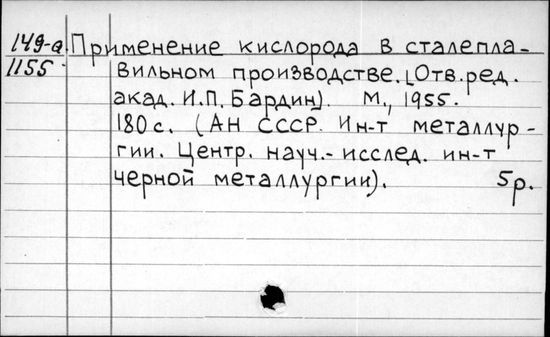 149-а Применение кислорода в сталепла-
1155 вильном производстве. [Отв. ред.
акад. И.П. Бардин). М., 1955.
180 с. (АН СССР. Ин-т металлур-
гии. Центр. науч.-исслед. ин-т
черной металлургии). 5р.